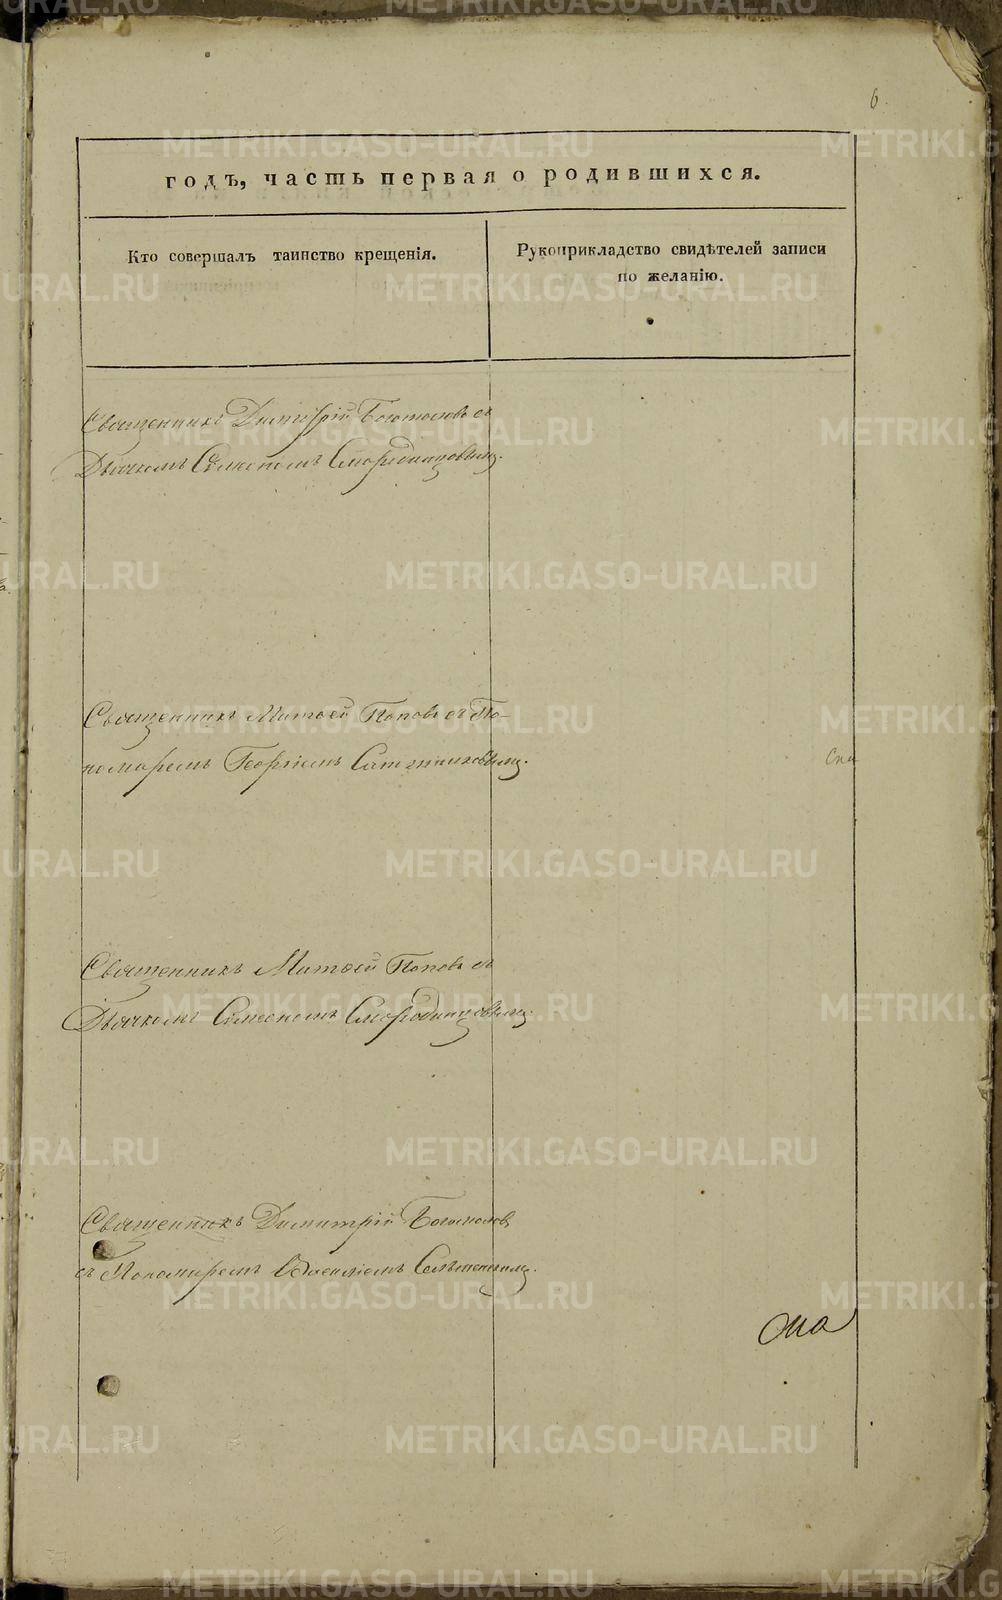 6
годъ, часть первая о родившихся.
Кто совершалъ таинство крещенія.
Рукоприкладство свидѣтелей записи
по желанію.
Священникъ Димитрій Богомоловъ съ
Дьячкомъ Симеономъ Смородинцовымъ.
Священникъ Матѳей Поповъ съ По-
номаремъ Георгіемъ
Священникъ Матѳей Поповъ съ
Дьячкомъ Симеономъ Смородинцовымъ.
Священникъ Димитрій Богомоловъ
съ Пономаремъ
METRIKI.GASO-URAL.RU